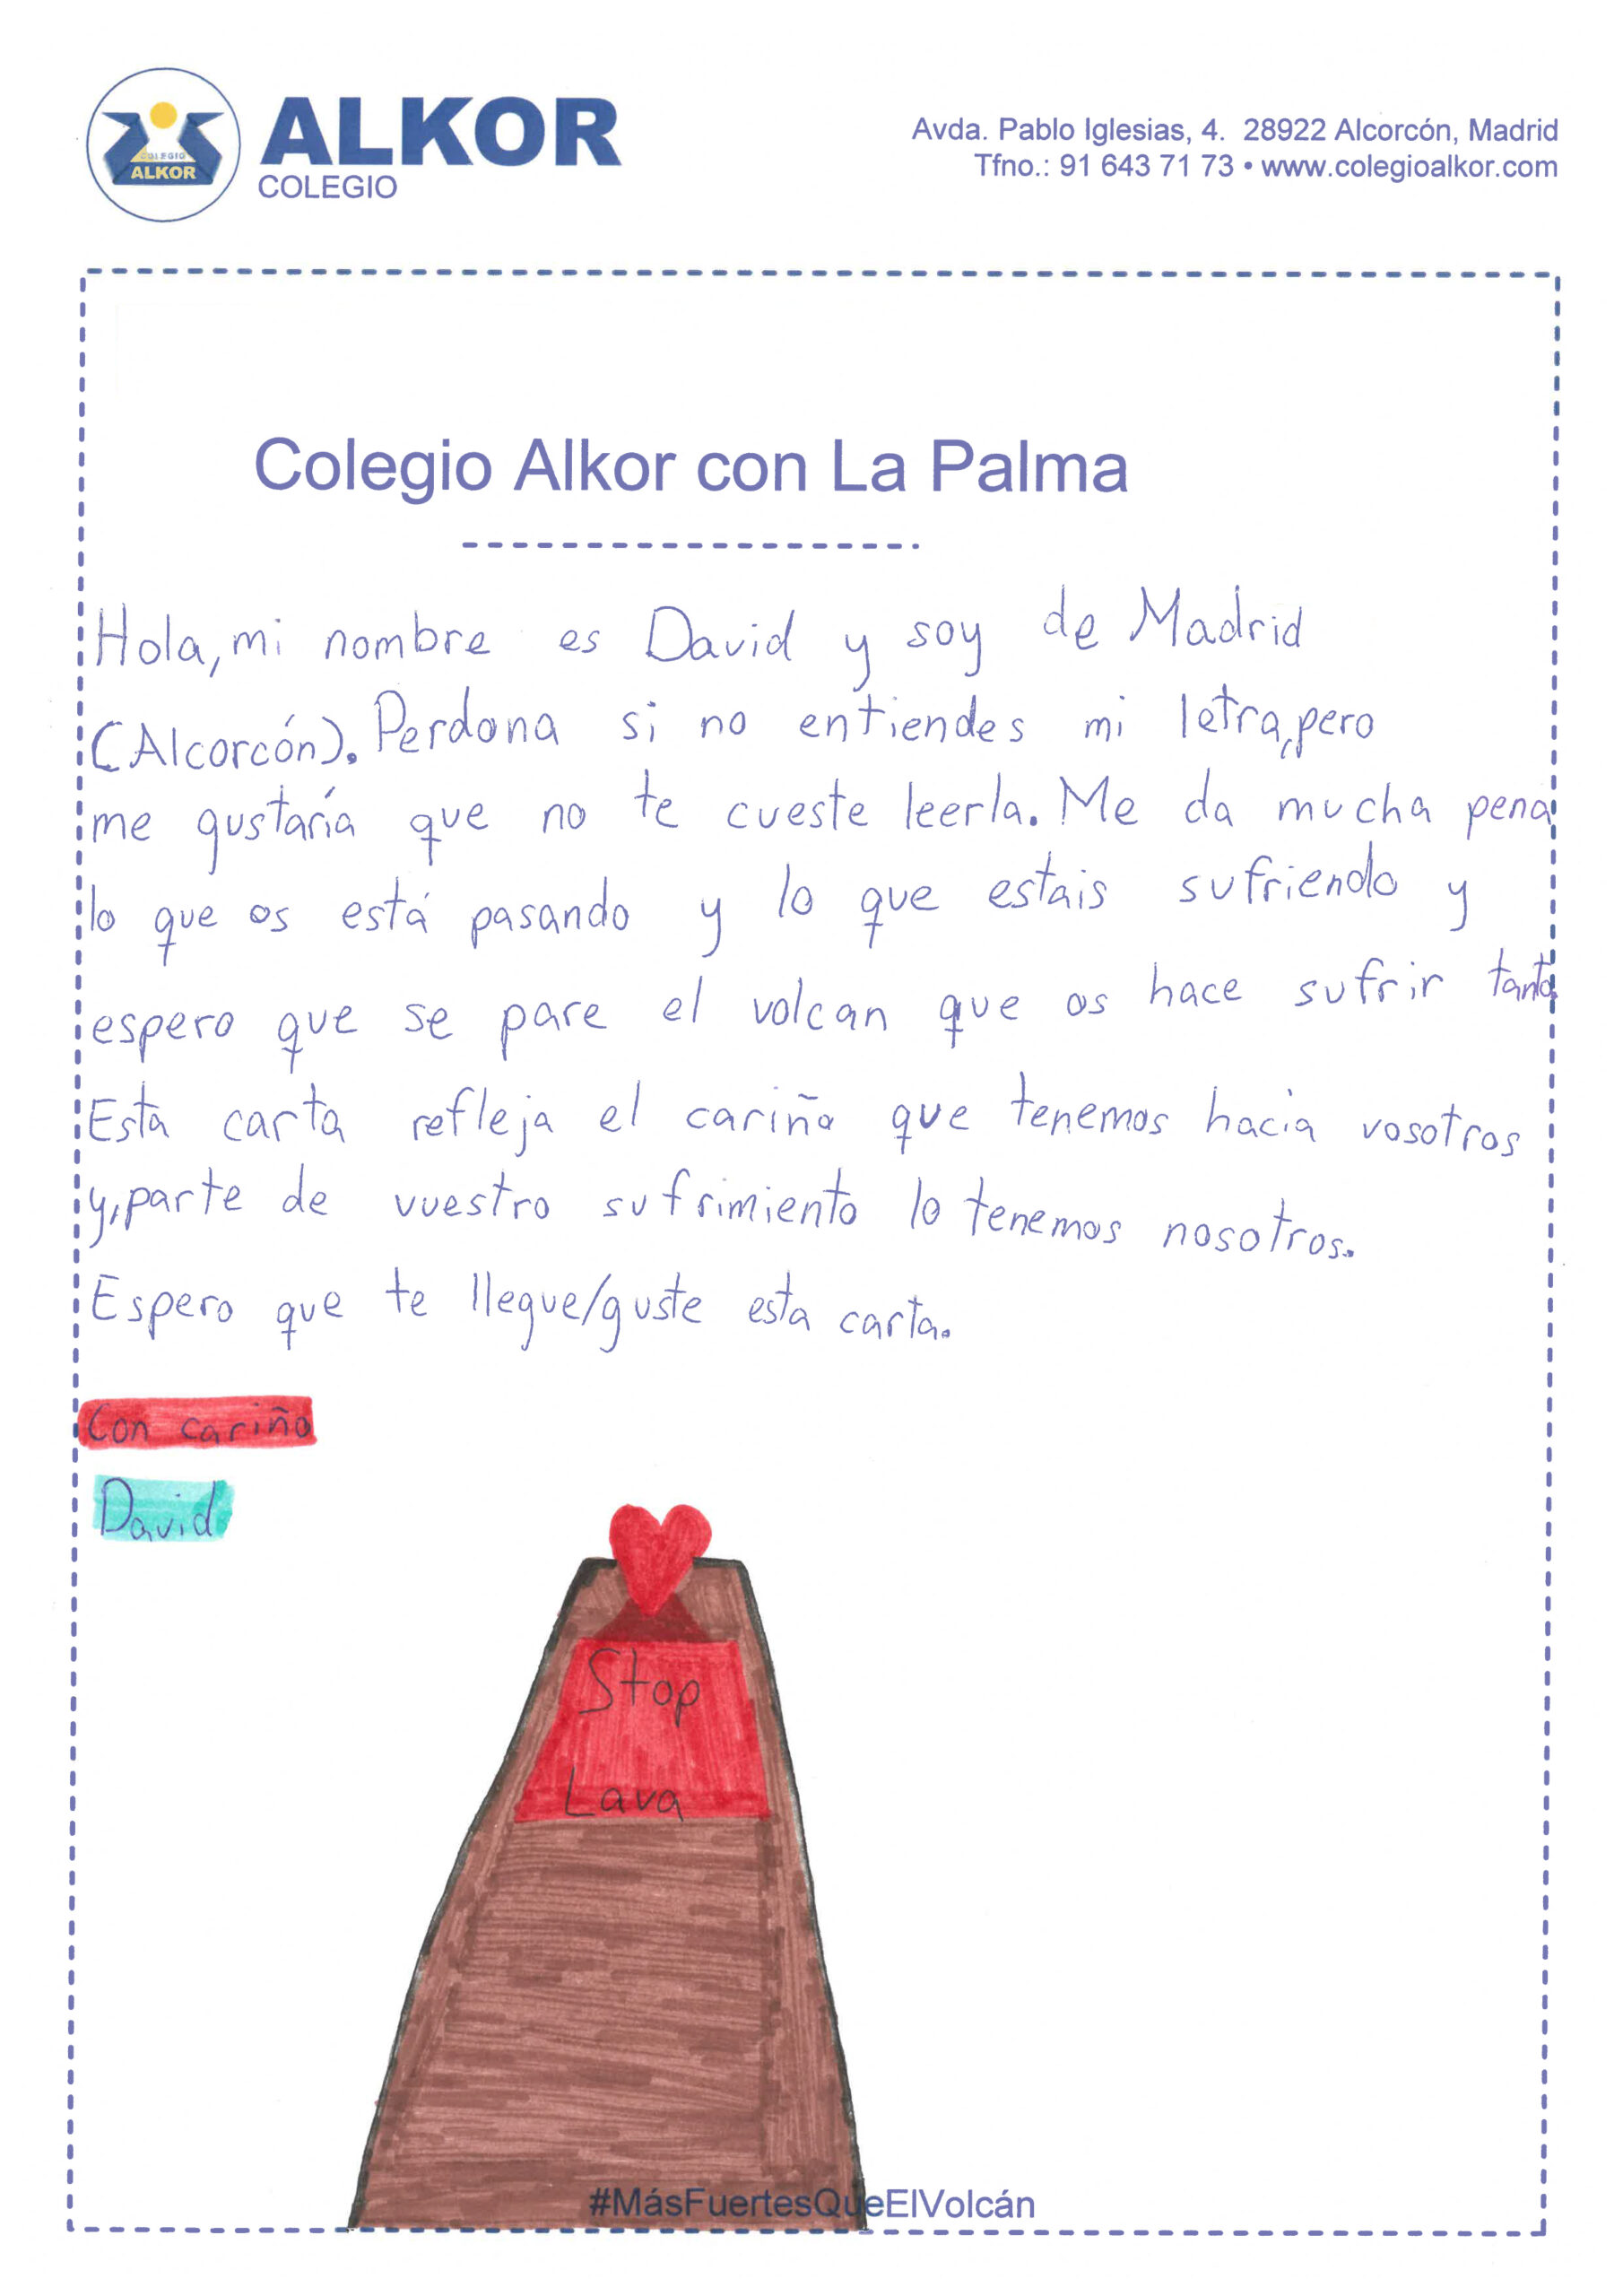 COLEGIO
ALKOR
ALKOR
COLEGIO
Avda. Pablo Iglesias, 4. 28922 Alcorcón, Madrid
Tfno.: 91 643 71 73 • www.colegioalkor.com
Colegio Alkor con La Palma
Hola, mi nombre es David y soy de Madrid
(Alcorcón). Perdona si no entiendes mi letra, pero
me gustaría que no te cueste leerla. Me da mucha pena
lo que os está pasando y lo que estais sufriendo y
espero que se pare el volcan que os hace sufrir tanto.
Esta carta refleja el cariño que tenemos hacia vosotros
y, parte de vuestro sufrimiento lo tenemos nosotros.
Espero que te llegue/guste esta carta.
Con cariño
David
Stop
Lava
#MásFuertesQueElVolcán